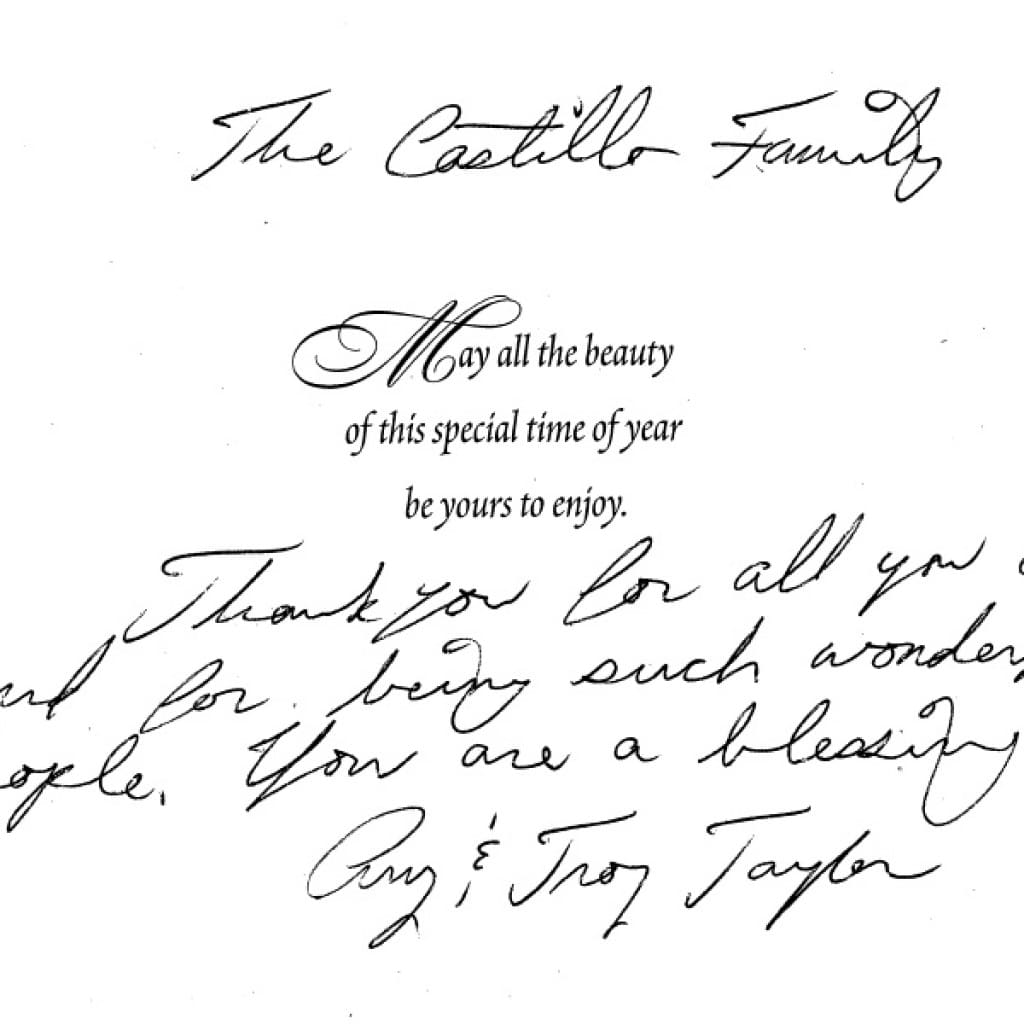 The Castillo Family
May all the beauty
of this special time of year
be yours to enjoy.
Thank you for all you
for being such
You are a blessing
Amy & Troy Taylor